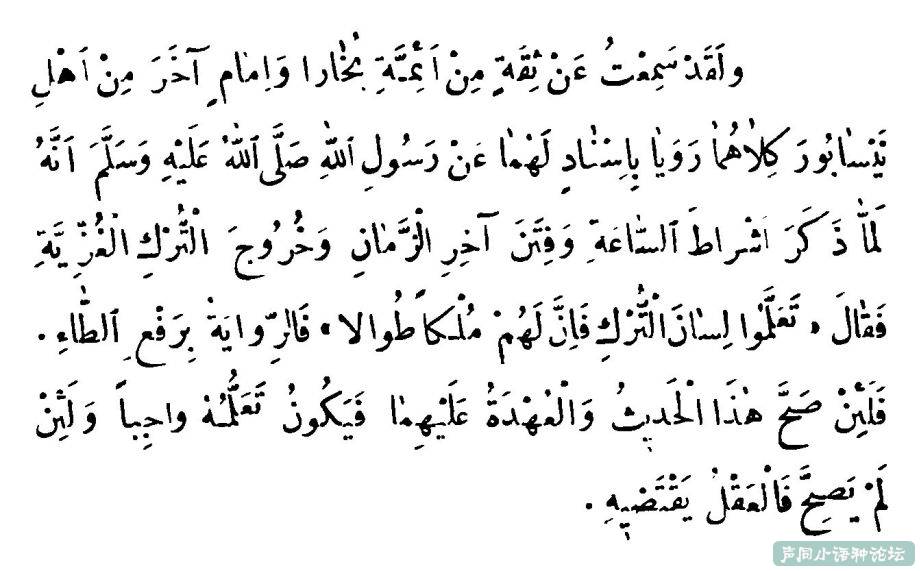 ولَقَدْ سَمِعْتُ عَنْ ثِقَةٍ مِنْ اَئِمَّةِ بُخَارا وَاِمَامٍ آخَرَ مِنْ اَهْلِ
نَيْسَابُورَ كِلَاهُمَا رَوَيَا بِاِسْنَادٍ لَهُمَا عَنْ رَسُولِ اللهِ صَلَّى اللهُ عَلَيْهِ وَسَلَّمَ اَنَّهُ
لَمَّا ذَكَرَ اَشْراطَ السَّاعَةِ وَفِتَنَ آخِرِ الزَّمَانِ وَخُرُوجَ التُّرْكِ الْغُزِّيَّةِ
فَقَالَ « تَعَلَّمُوا لِسانَ التُّرْكِ فَاِنَّ لَهُمْ مُلْكاً طُوالا » فَالرِّوايَةُ بِرَفْعِ الطَّاءِ .
فَلَئِنْ صَحَّ هٰذَا الْحَديثُ وَالْعُهْدَةُ عَلَيْهِمَا فَيَكُونُ تَعَلُّمُهُ واجِباً وَلَئِنْ
لَمْ يَصِحَّ فَالْعَقْلُ يَقْتَضيهِ .
声同小语种论坛